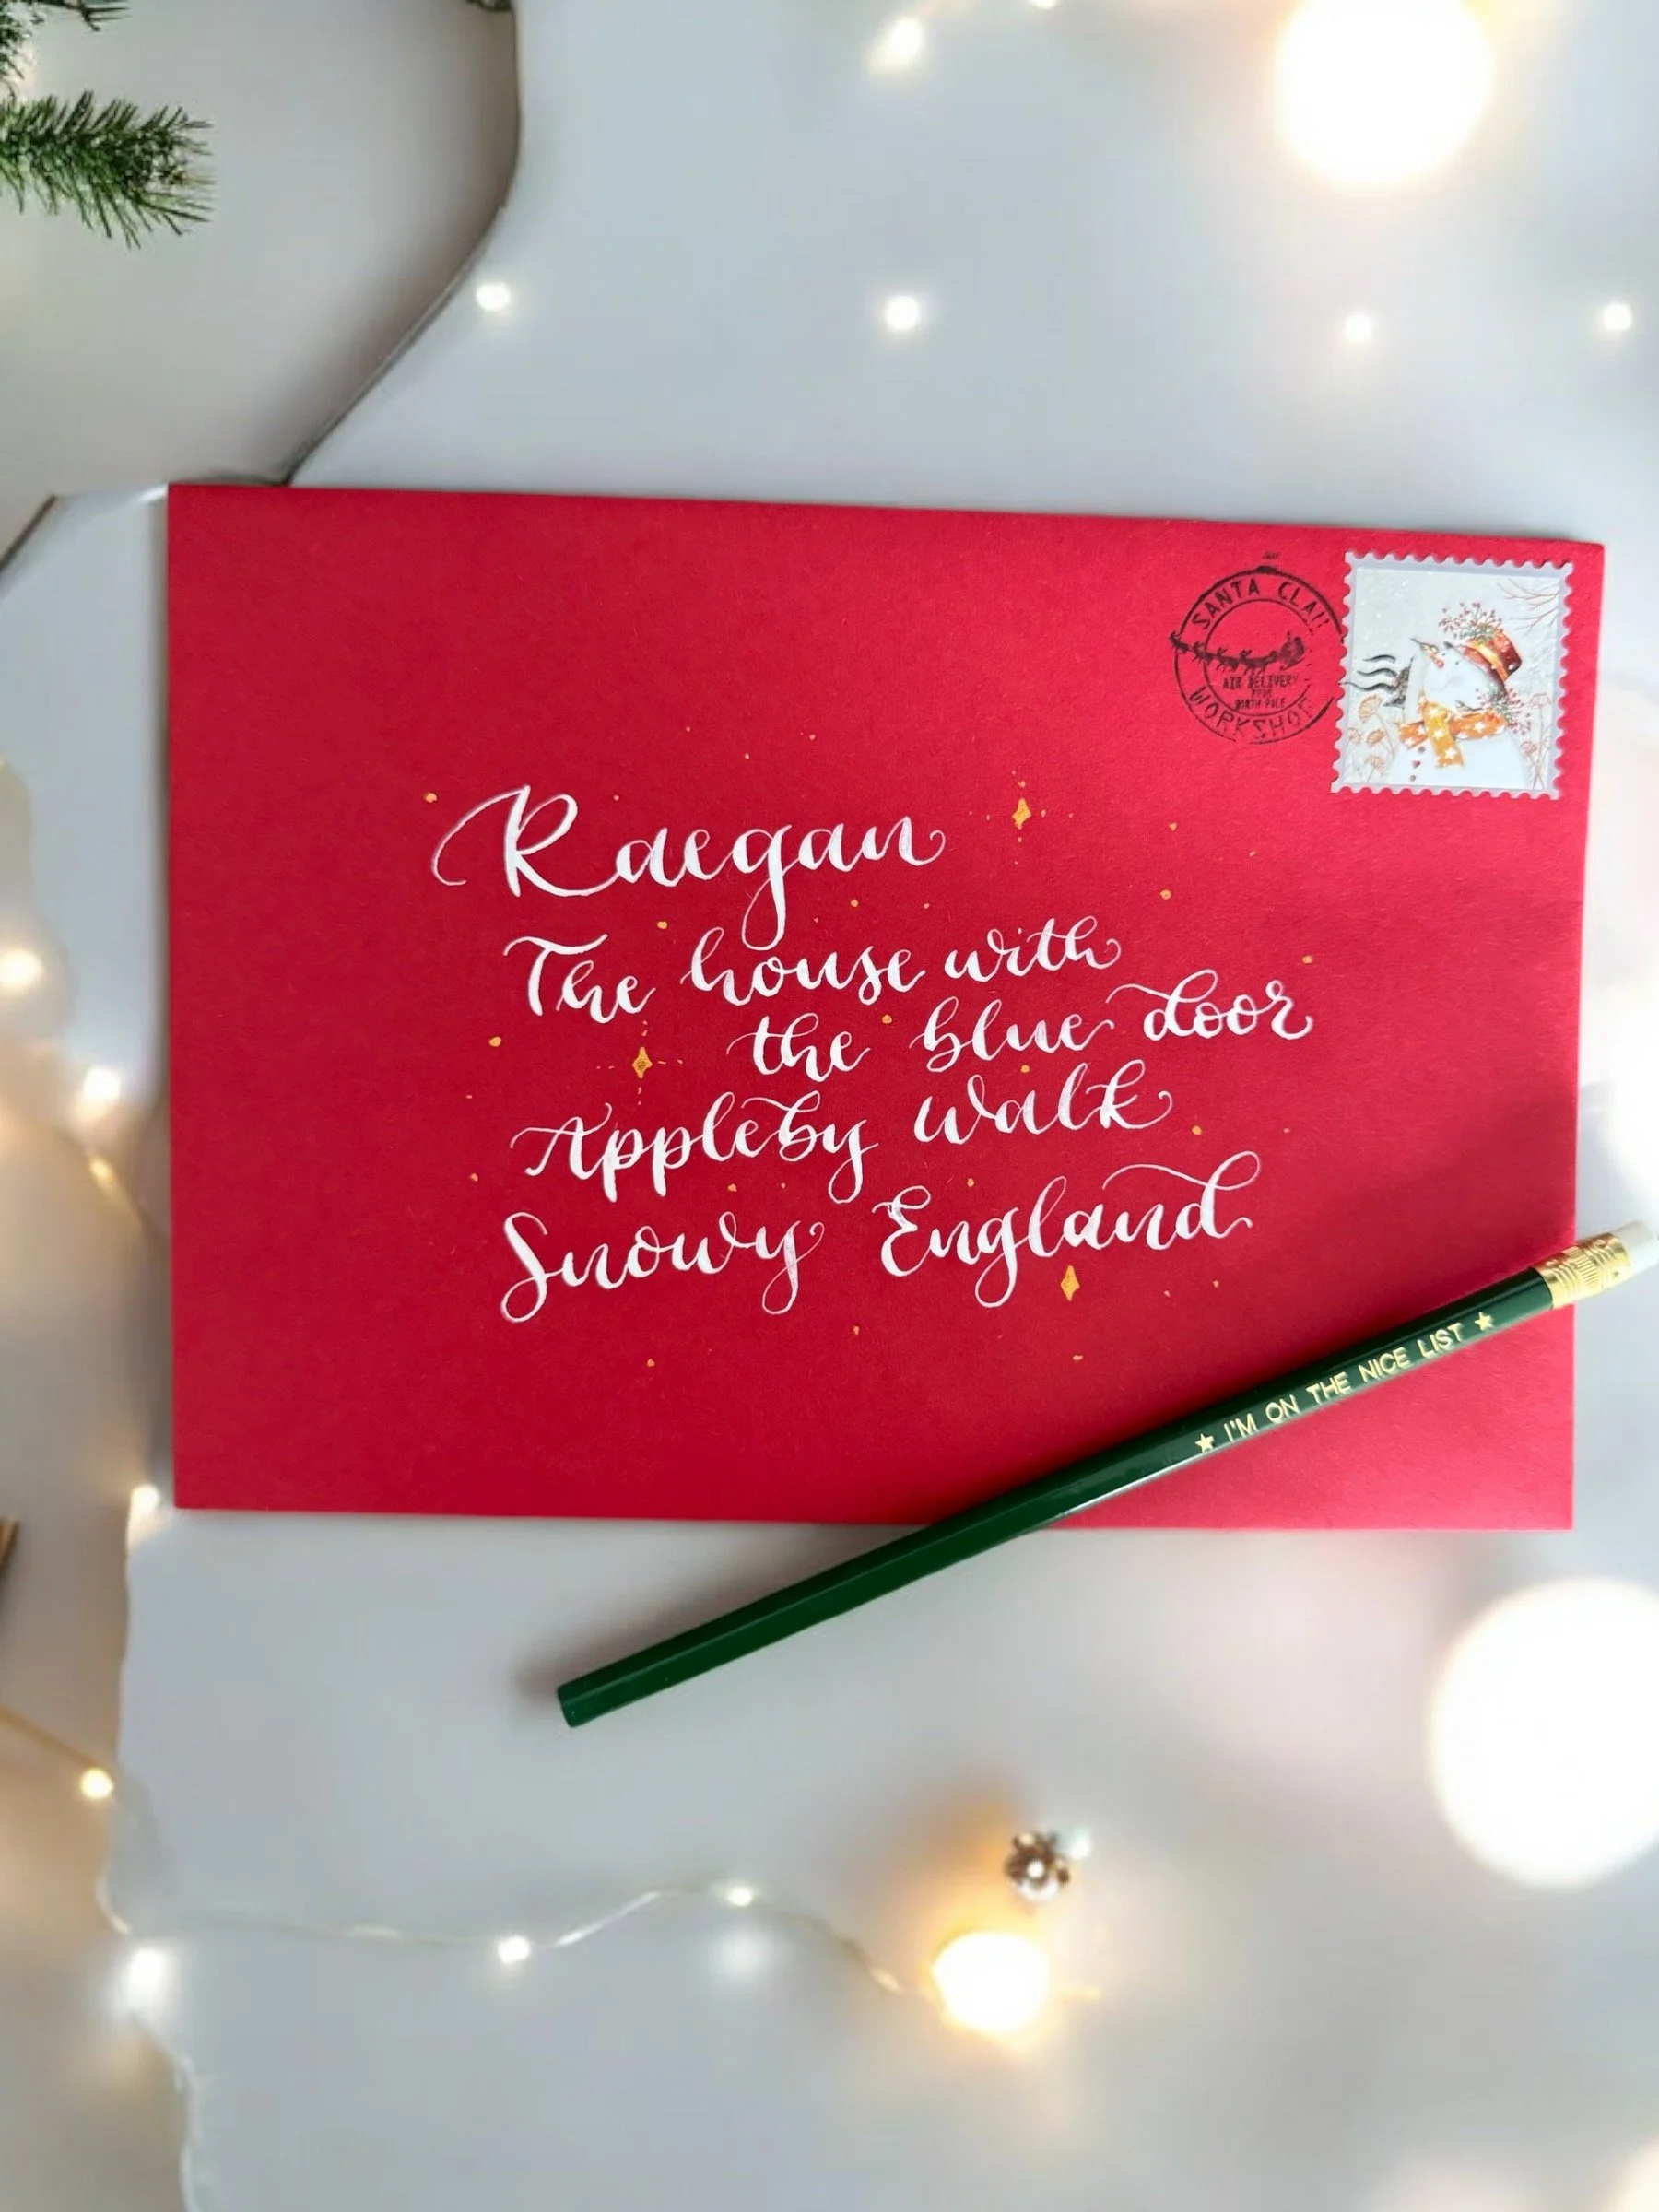 SANTA CLAU
AIR DELIVERY
FROM
NORTH POLE
WORKSHOP
Raegan
The house with
the blue door
Appleby Walk
Snowy England
★ I'M ON THE NICE LIST ★